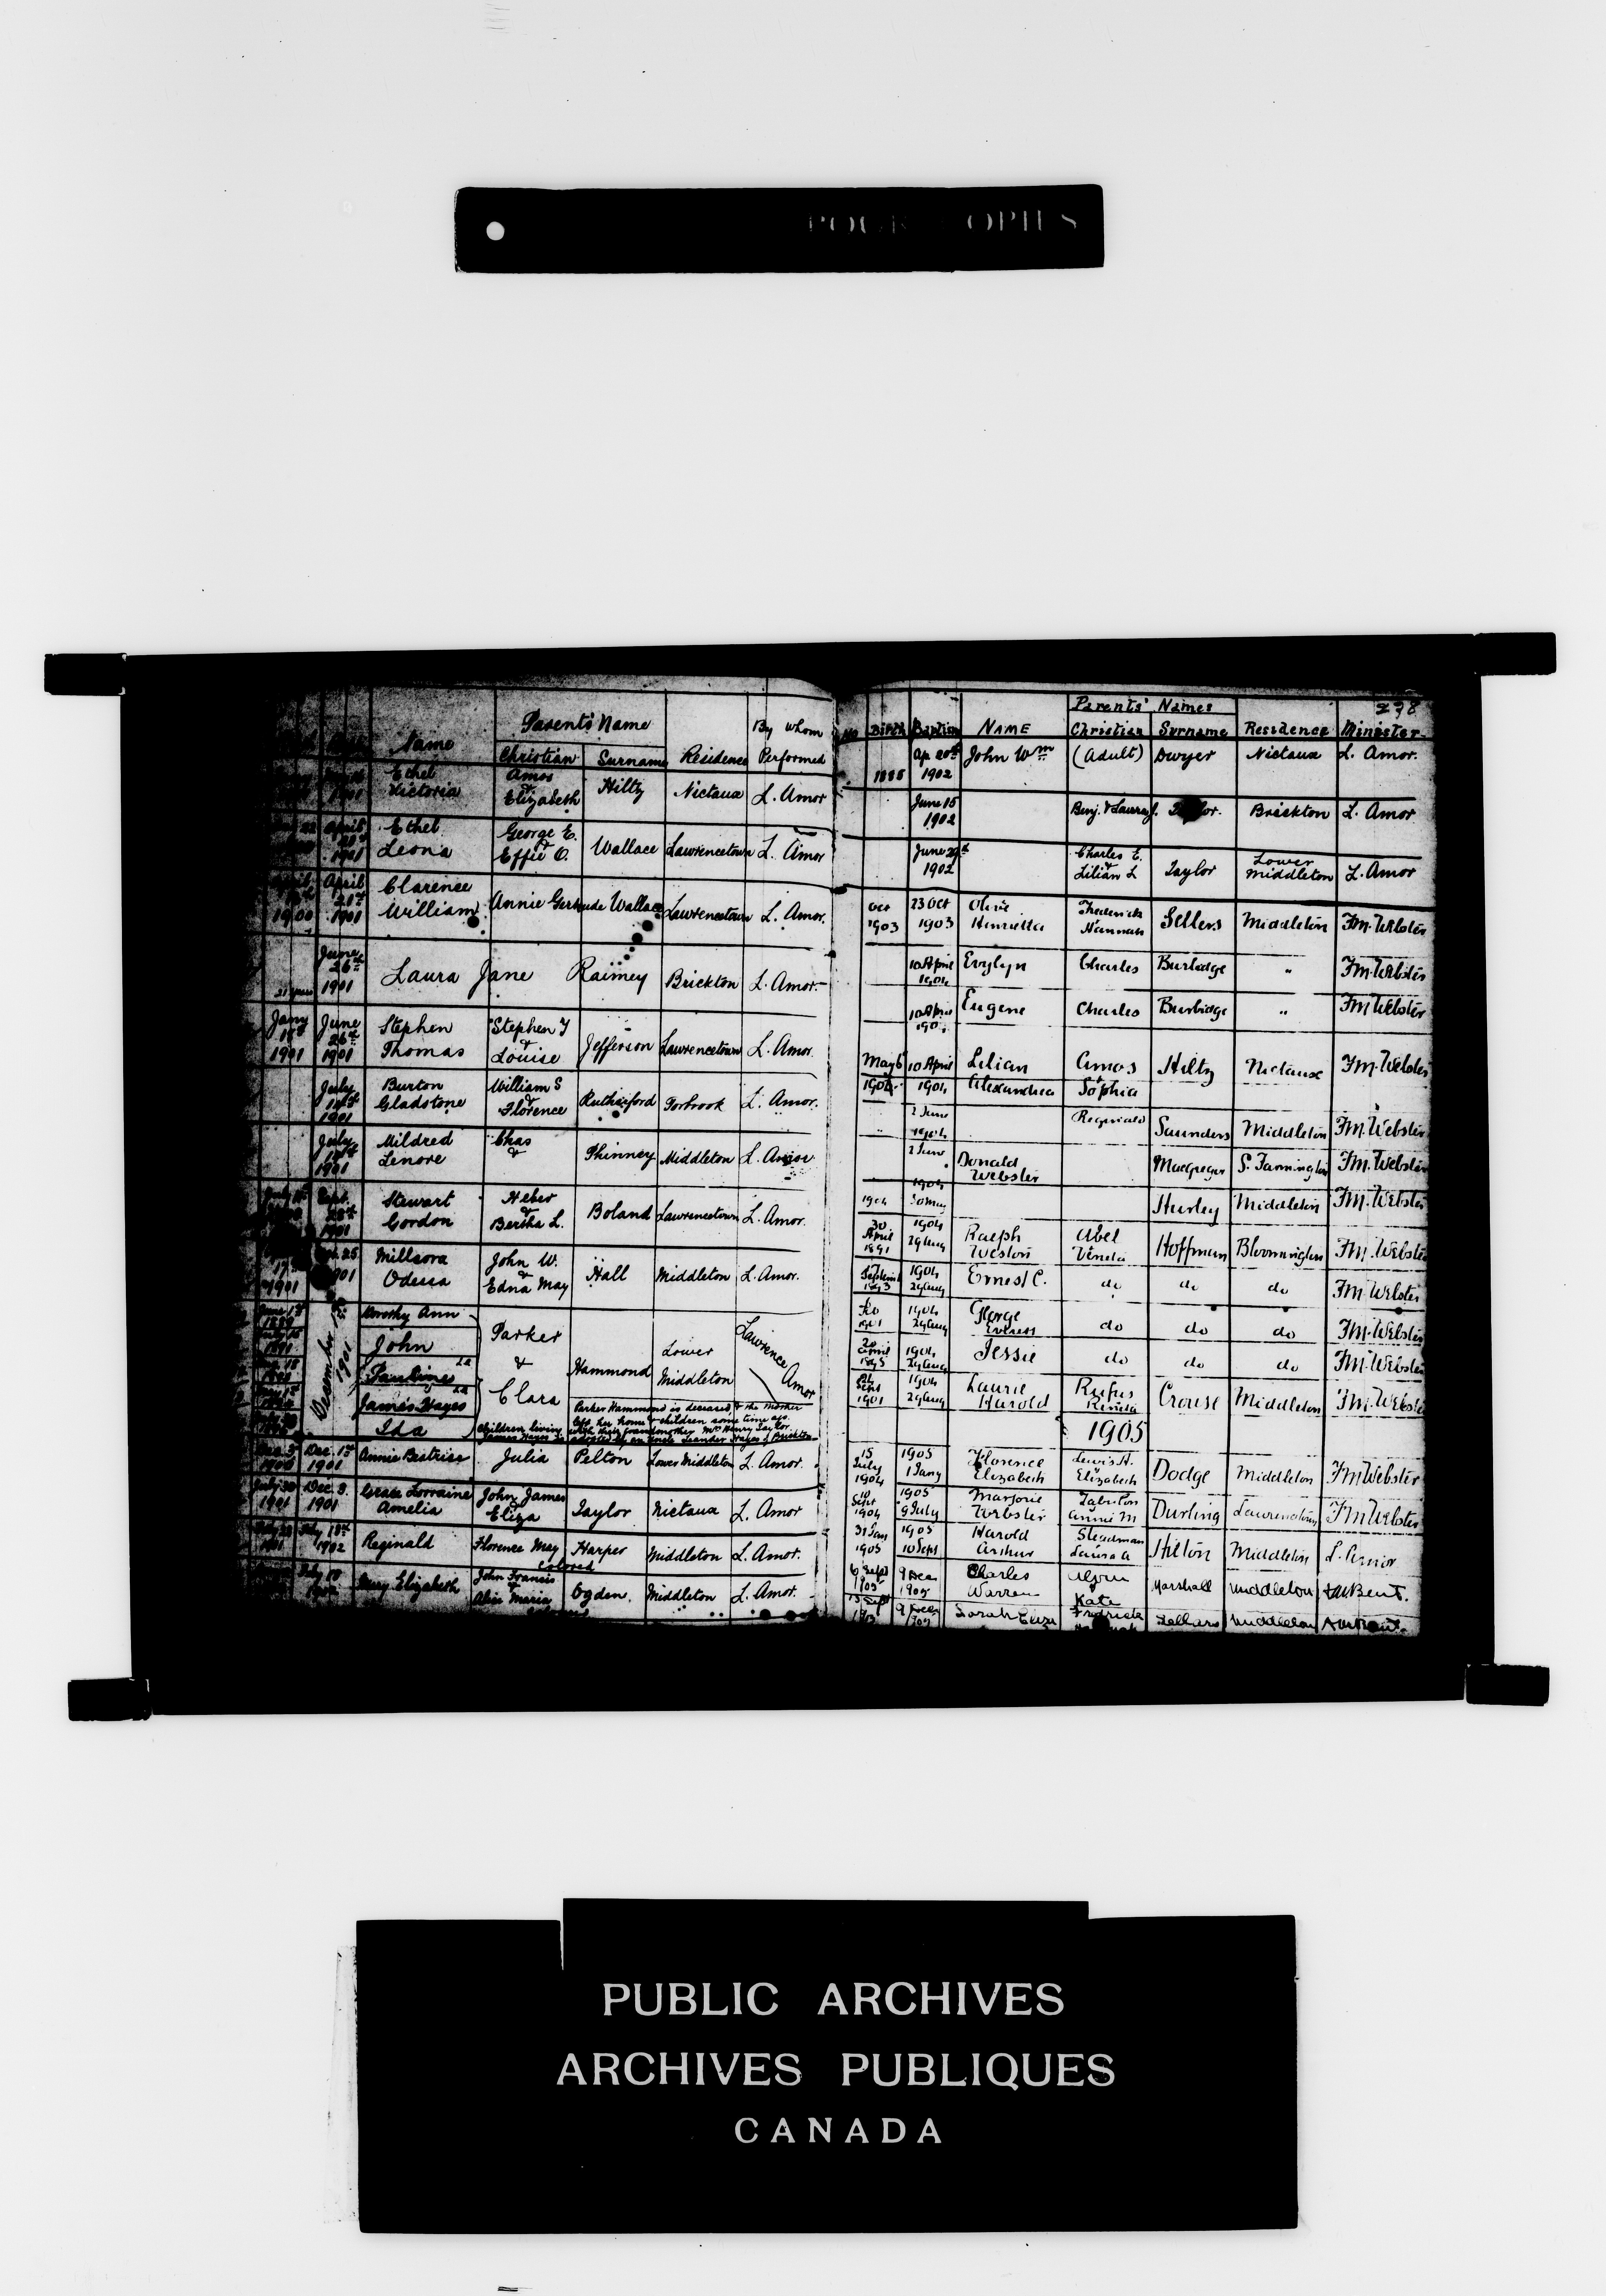 OPIES
Parents' Name
By whom
Name
Christian Surname Residence Performed
Ethel Amos
Victoria & Hilty Nictaux L. Amor
1901 Elizabeth
Ethel George E.
April & Wallace Lawrencetown L. Amor
1901 Leona Effie O.
April April Clarence
21st Annie Gertrude Wallace Lawrencetown L. Amor.
1900 1901 William
June
26th Laura Jane Raimey Brickton L. Amor.
1901
Jany June Stephen Stephen T
26th & Jefferson Lawrencetown L. Amor.
1901 1901 Thomas Louise
July Burton William S
& Rutherford Torbrook L. Amor.
1901 Gladstone Florence
July Mildred Chas
& Phinney Middleton L. Amor
1901 Lenore
Sept. Stewart Heber
& Boland Lawrencetown L. Amor.
1901 Gordon Bertha L.
25 Millsora John W.
& Hall Middleton L. Amor.
1901 Odessa Edna May
June 1st Dorothy Ann
1889
John Parker Lower Lawrence
December 1901
Pauline & Hammond Middleton Amor
James Hayes Clara
Ida
Parker Hammond is deceased & the mother
left her home & children some time ago.
Children living with their grandmother Mrs Henry Taylor
James Hayes is adopted by an uncle Leander Hayes of Brickton
Dec. 1st Annie Beatrice Julia Pelton Lower Middleton L. Amor.
1900 1901
July 30 Dec. 8. Grace Lorraine John James
& Taylor Nictaux L. Amor
1901 1901 Amelia Eliza
Reginald Florence May Harper Middleton L. Amor.
1901 1902 Colored
Mary Elizabeth John Francis
& Ogden. Middleton L. Amor.
Alice Maria
Parents' Names 238
No Birth Baptism NAME Christian Surname Residence Minister
Ap 20th John Wm (Adult) Dwyer Nictaux L. Amor.
1902
June 15 Benj. & Laura J. Brickton L. Amor
1902
June 29th Charles E. Lower
& Taylor L. Amor
1902 Lilian L Middleton
Oct 23 Oct Olive Frederick
Sellers Middleton F.M. Webster
1903 1903 Henrietta Hannah
10 April Evylyn Charles Burbidge " F.M. Webster
1904
10 April Eugene Charles Burbidge " F.M. Webster
May 6 10 April Lilian Amos
& Hilty Nictaux F.M. Webster
1904 1904 Alexandrea Sophia
2 June Reginald Saunders Middleton F.M. Webster
1904
2 June Donald
Macgregor S. Farmington F.M. Webster
1904 Webster
1904 Hurley Middleton F.M. Webster
30 1904 Ralph Abel
April Hoffman Bloomington F.M. Webster
1891 29 Aug Weston Vineda
1904 Ernest C. do do do F.M. Webster
1893 29 Aug
1904 George do do do F.M. Webster
1901 29 Aug Everess
20
April 1904 Jessie do do do F.M. Webster
1895 29 Aug
Sept 1904 Laurie Rufus
Crouse Middleton F.M. Webster
1901 29 Aug Harold
1905
15 1905 Florence Lewis H.
July & Dodge Middleton F.M. Webster
1904 1 Jany Elizabeth Elizabeth
10 1905 Marjorie
Sept Durling Lawrencetown F.M. Webster
1904 9 July Webster Annie M
31 Jan 1905 Harold Steadman
Hilton Middleton L. Amor
1905 10 Sept Arthur Laura A
6 Sept 9 Dec Charles Alvin
& Marshall Middleton
1905 1905 Warren Kate
15 Sept 9 Dec Sarah Eliza Fredrick Middleton
PUBLIC ARCHIVES
ARCHIVES PUBLIQUES
CANADA